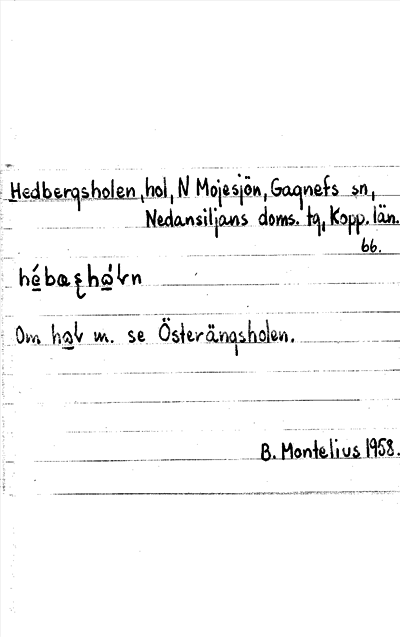 Hedbergsholen, hol, N Mojesjön, Gagnefs sn,
Nedansiljans doms. tg, Kopp. län.
66.
Om hol m. se Österängsholen.
B. Montelius 1958.